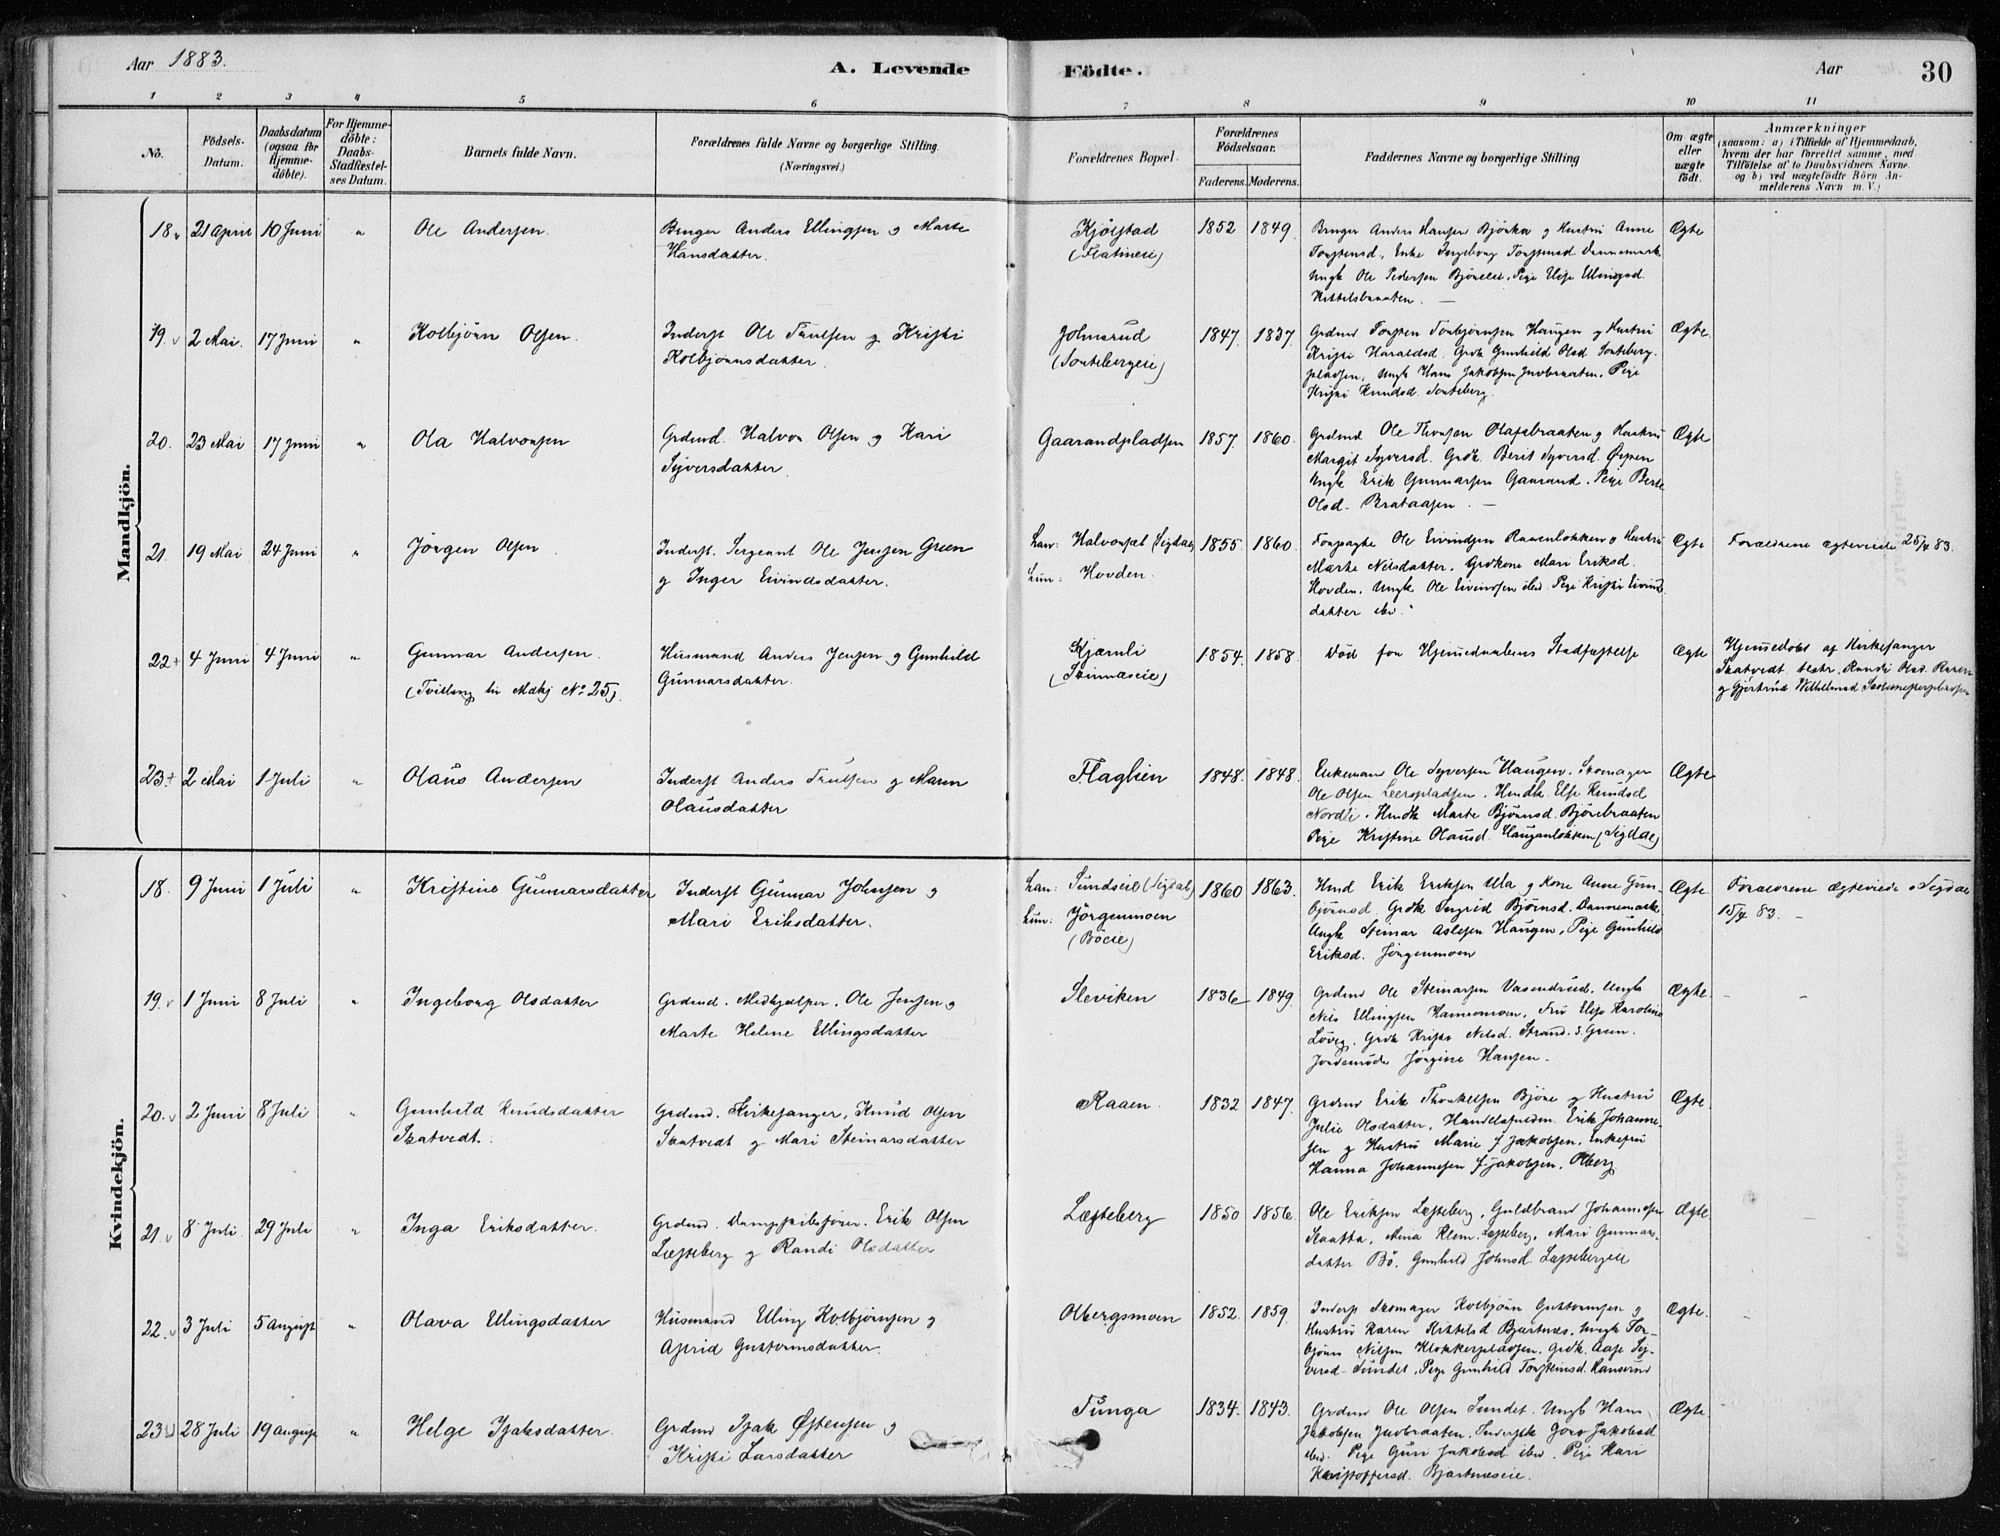 Aar 1883.
A. Levende Födte.
Aar
30
1 2 3 4 5 6 7 8 9 10 11
No.
Födsels-Datum.
Daabsdatum (ogsaa for Hjemme-döbte).
For Hjemme-döbte: Daabs-Stadfæstel-ses Datum.
Barnets fulde Navn.
Forældrenes fulde Navne og borgerlige Stilling (Næringsvei.)
Forældrenes Bopæl.
Forældrenes Födselsaar.
Faderens. Moderens.
Faddernes Navne og borgerlige Stilling
Om ægte eller uægte födt.
Anmærkninger
(saasom: a) i Tilfælde af Hjemmedaab,
hvem der har forrettet samme, med
Tilföielse af to Daabsvidners Navne.
og b) ved uægtefödte Börn An-
melderens Navn m. V.)
Mandkjön.
18 21 April 10 Juni " Ole Andersen. Bruger Anders Ellingsen og Marte
Hansdatter.
Kjölstad
(Flatineie)
1852 1849. Bruger Anders Hansen Björka og Hustru Anne
Torstensd, Enke Ingeborg Torstensd Dannemark
Ungk Ole Pedersen Björeeie, Pige Else
Kittelsbraaten. —
Ægte
19. 2 Mai. 17 Juni " Kolbjörn Olsen. Inderst Ole Trulsen og Kristi
Kolbjörnsdatter.
Johnsrud
(Sontebergeie)
1847. 1837. Grdmd Torsten Torbjörnsen Haugen og Hustru
Kristi Haraldsd. Grdk Gunhild Olsd Sonteberg-
pladsen, Ungk Hans Jakobsen Juvbraaten. Pige
Kristi Knudsd. Sonteberg.
Ægte
20. 23 Mai 17 Juni " Ola Halvorsen Grdmd. Halvor Olsen og Kari
Syversdatter.
Gaarandpladsen 1857. 1860. Grdmd Ole Olafsbraaten og Hustru
Margit Syversd. Grdk. Berit Syversd.
Ungk Erik Gunnarsen Gaarand. Pige Berte
Olsd. Brataasen. —
Ægte
21. 19 Mai 24 Juni " Jörgen Olsen Inderst. Sergeant Ole Jensen Green
og Inger Eivindsdatter.
han: (Sigdal)
hun: Hovden.
1855 1860. Ole Eivindsen og Hustru
Marte Nilsdatter. Grdkone Mari Eriksd.
Hovden. Ungk Ole Eivindsen ibid Pige Kristi Eivinds
datter ibid.
Ægte Forældrene ægteviede 25/4 83.
22+ 4 Juni 4 Juni " Gunnar Andersen.
(Tvilling til Mdkj No 25)
Husmand Anders Jensen og Gunhild
Gunnarsdatter.
Kjærnli
1854. 1858. Död før Hjemmedaabens Stadfæstelse Ægte Hjemmedöbt af Kirkesanger
Skatvedt. testr. Randi Olsd. Raaen
og Gjertrud Wilhelmsd
23+ 2 Mai 1 Juli " Olaus Andersen Inderst Anders Trulsen og Maren
Olausdatter
Flaglien 1848. 1848. Enkemand Ole Syversen Haugen. Skomager
Ole Olsen Leerpladsen. Hmdk. Else Knudsd
Nordli. Hmdk Marte Björnsd. Björebraaten
Pige Kristine Olausd. Hauganlökken (Sigdal)
Ægte
Kvindekjön.
18. 9 Juni 1 Juli " Kristine Gunnarsdatter Inderst Gunnar Johnsen og
Mari Eriksdatter.
han: Sundseie (Sigdal)
hun: Jörgenmoen
(Böeie)
1860 1863. Hmd Erik Eriksen Ula og Kone Anne Gun-
björnsd. Grdk Ingrid Björnsd. Dannemark.
Ungk Steinar Aslesen Haugen, Pige Gunhild
Eriksd. Jörgenmoen
Ægte Forældrene ægteviede i Sigdal
15/4 83. —
19. 1 Juni 8 Juli " Ingeborg Olsdatter Grdmd. Medhjælper. Ole Jensen og
Marte Helene Ellingsdatter
Sleviken 1836 1849. Grdmd Ole Steinarsen Vasendrud. Ungk
Nils Ellingsen Hannemoen, Fru Else Karoline
Grdk Kristi Nilsd. Strand. s. Green.
Jordemoder Jörgine Hansen.
Ægte.
20. 2 Juni 8 Juli " Gunhild Knudsdatter
Skatvedt.
Grdmd. Kirkesanger, Knud Olsen
Skatvedt og Mari Steinarsdatter
Raaen. 1832 1847. Grdmd Erik Thorkelsen Björe og Hustru
Julie Olsdatter, Handelsfuldm. Erik Johanne-
sen og Hustru Marie f Jakobsen, Enkefru
Hanna Johannesen f. Jakobsen. Olberg
Ægte.
21. 8 Juli 29 Juli " Inga Eriksdatter. Grdmd. Dampskibsförer. Erik Olsen
Lægteberg og Randi Olsdatter
Lægteberg 1850 1856. Ole Eriksen Lægteberg, Guldbrand Johannesen
Slaatta, Mina Klem. Lægteberg, Mari Gunnars-
datter Bö. Gunhild Johnsd. Lægtebergeie
Ægte
22. 3 Juli 5 August " Olava Ellingsdatter Husmand Elling Kolbjörnsen og
Astrid Guttormsdatter.
Olbergsmoen 1852. 1859. Inderst Skomager Kolbjörn Guttormsen og
Hustru Karen Kittilsd Bjertnæs. Ungk Tor-
björn Nilsen Klokkerpladsen, Grdk. Aase Sy-
versd. Sundet. Pige Gunhild Torsteinsd. Hanserud
Ægte.
23 28 Juli 19 August " Helge Isaksdatter. Grdmd Isak Östensen og
Kristi Larsdatter
Tunga 1834. 1843. Grdmd Ole Olsen Sundet. Ungk Hans
Jakobsen Juvbraaten. Inderstk Göro Jakobsd
ibid. Pige Guri Jakobsd ibid. Pige Kari
Kristoffersd. Bjertnæseie.
Ægte